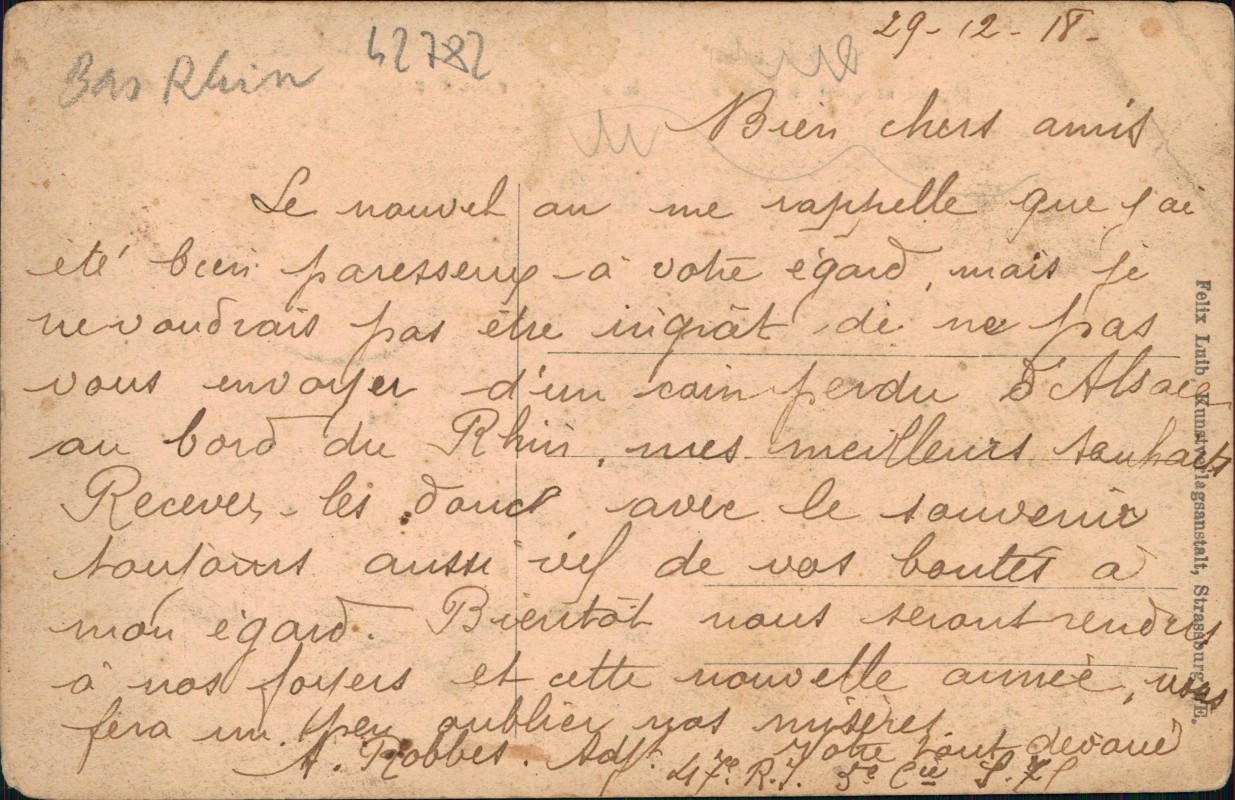 29-12-18-
Bas Rhin
42782
Bien chers amis
Le nouvel an me rappelle que j'ai
été bien paresseux à votre égard, mais je
ne voudrais pas être ingrât de ne pas
vous envoyer d'un coin perdu d'Alsace
au bord du Rhin, mes meilleurs souhaits
Recevez les donc avec le souvenir
toujours aussi vif de vos bontés à
mon égard. Bientôt nous seront rendus
à nos foyers et cette nouvelle année, nous
fera un peu oublier nos misères
Votre tout dévoué
A. Robbes. Adjt. 47e R.I. 5e Cie
Felix Luib Kunstverlagsanstalt, Strassburg i. E.